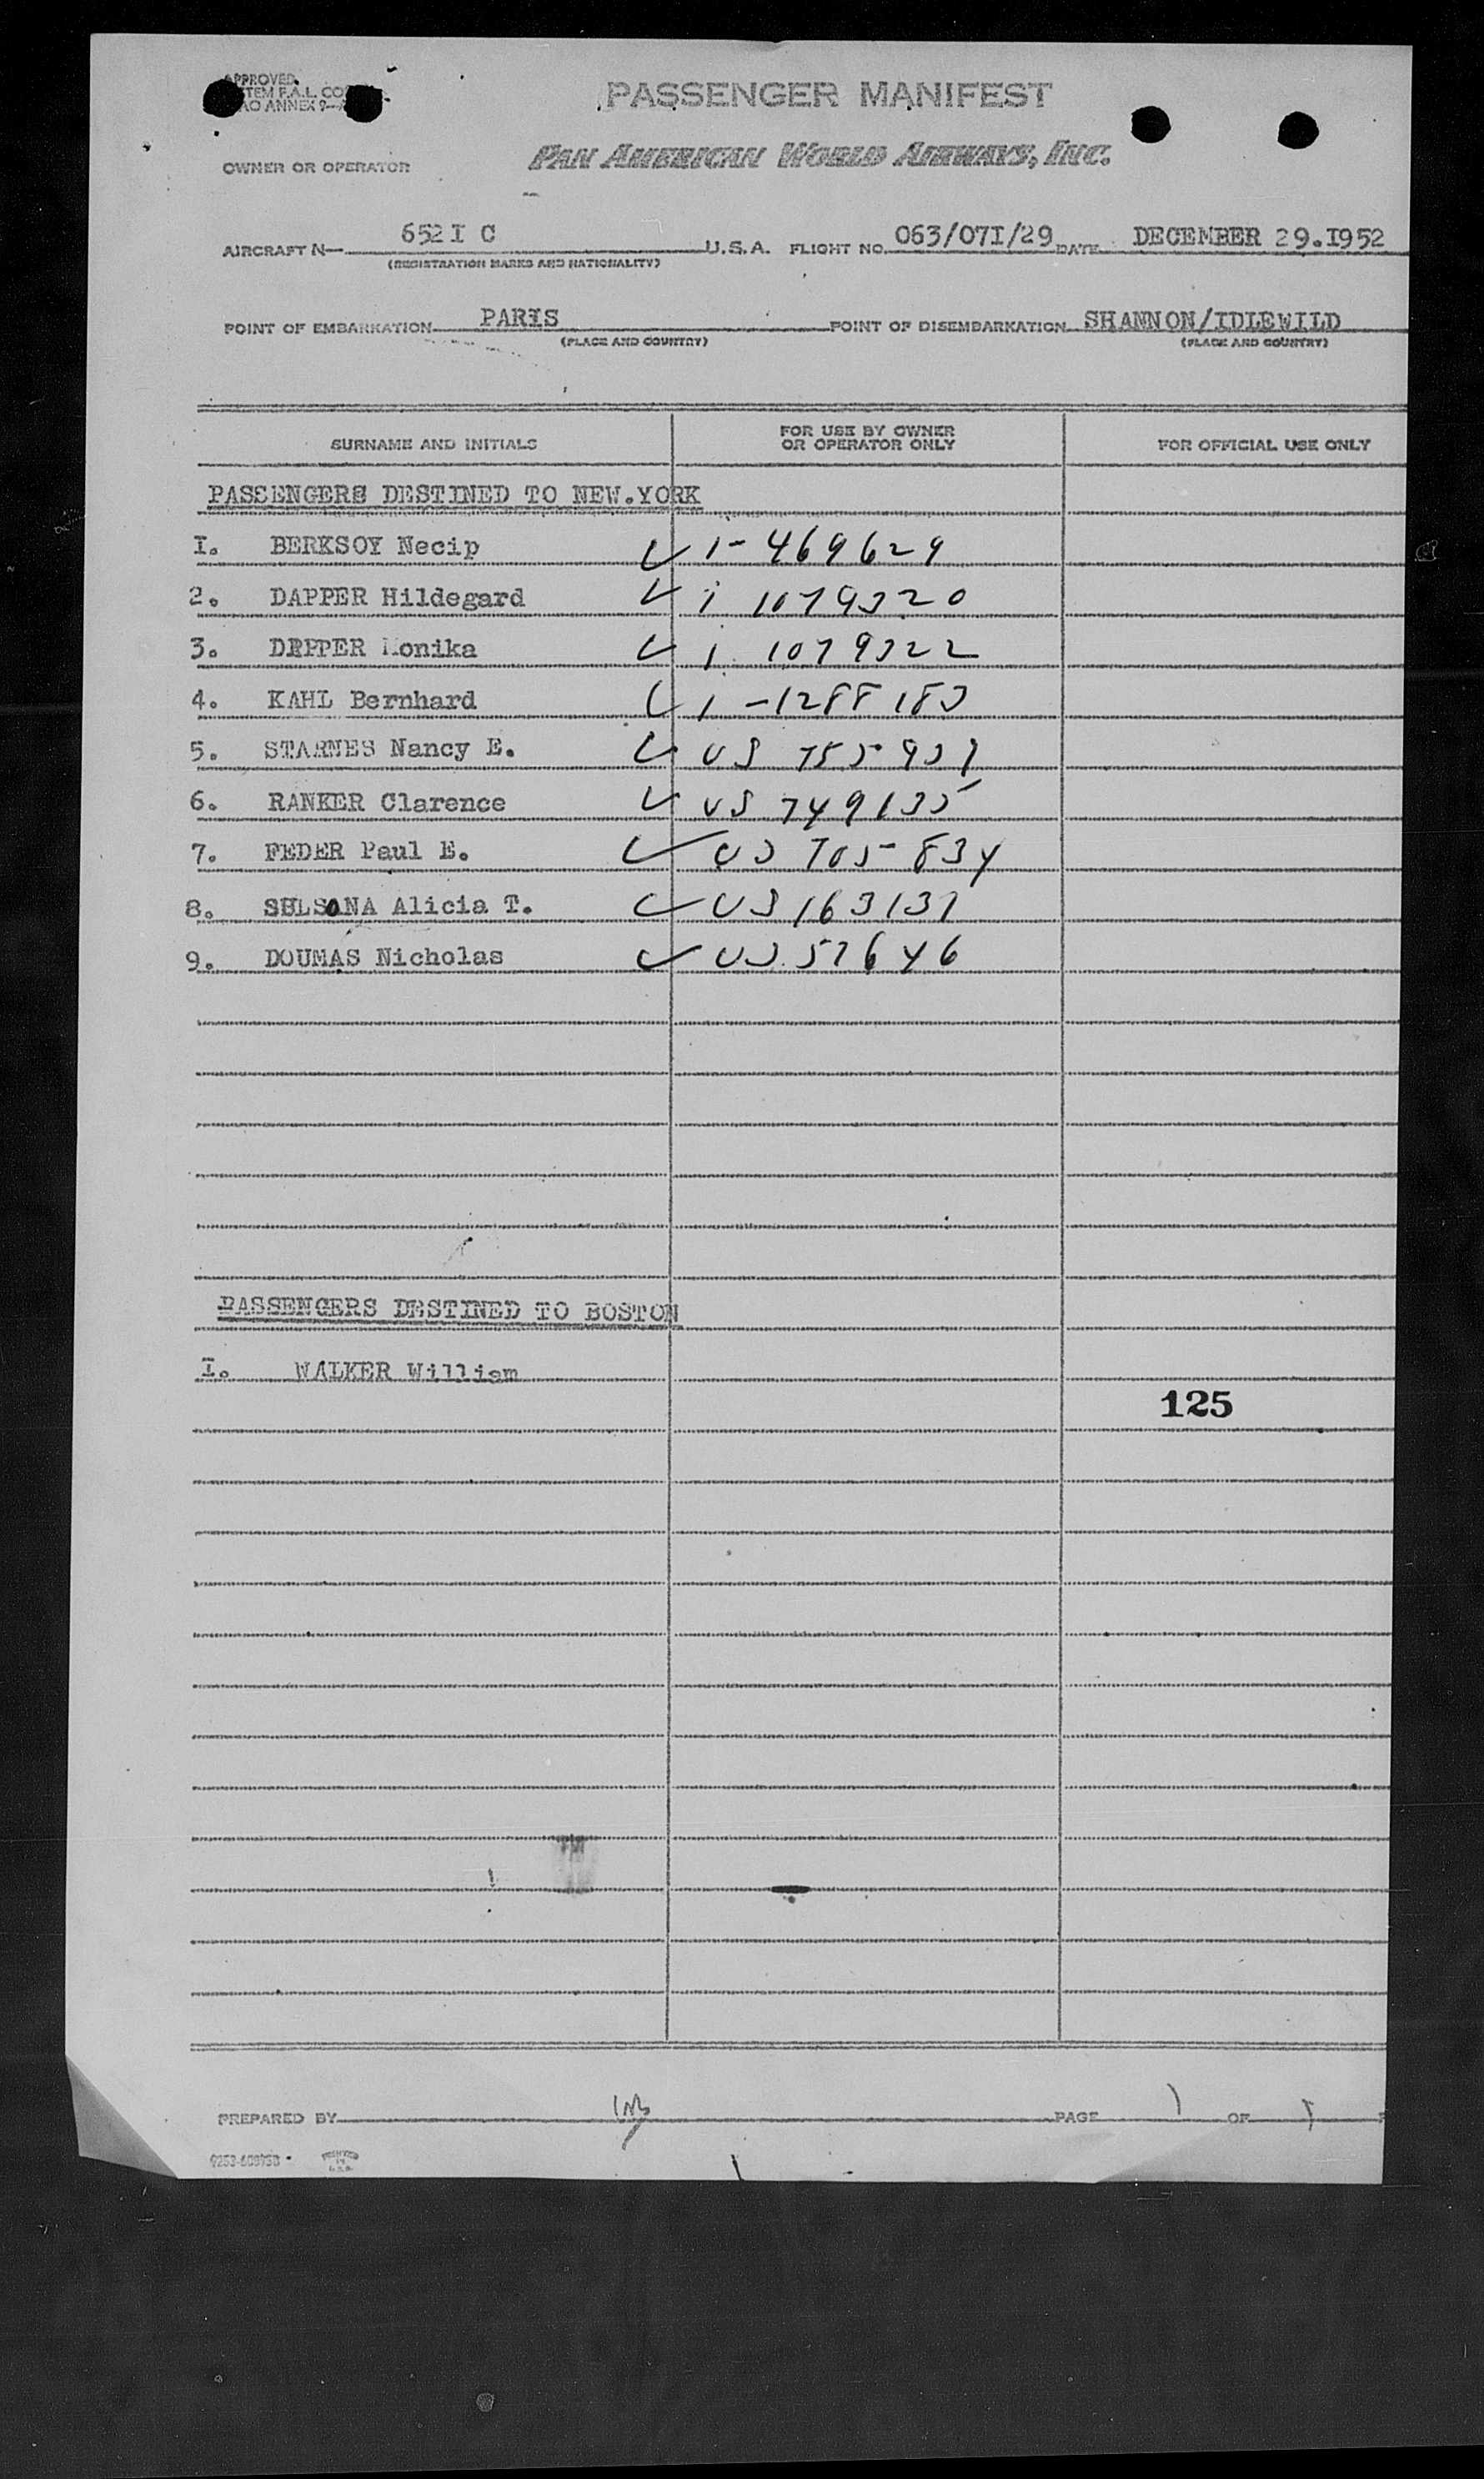 APPROVED
PASSENGER MANIFEST
OWNER OR OPERATOR
PAN AMERICAN WORLD AIRWAYS, INC.
AIRCRAFT N— 652I C U.S.A. FLIGHT NO. 063/07I/29 DATE DECEMBER 29.I952
(REGISTRATION MARKS AND NATIONALITY)
POINT OF EMBARKATION PARIS POINT OF DISEMBARKATION SHANNON/IDLEWILD
(PLACE AND COUNTRY) (PLACE AND COUNTRY)
SURNAME AND INITIALS FOR USE BY OWNER OR OPERATOR ONLY FOR OFFICIAL USE ONLY
PASSENGERS DESTINED TO NEW.YORK
I. BERKSOY Necip ✓ 1-469629
2. DAPPER Hildegard ✓ i 1079320
3. DEPPER Monika ✓ i 1079322
4. KAHL Bernhard ✓ 1-1288183
5. STARNES Nancy E. ✓ US 755937
6. RANKER Clarence ✓ US 749135
7. FEDER Paul E. ✓ US 705834
8. SELSONA Alicia T. ✓ US 163137
9. DOUMAS Nicholas ✓ US 57646
PASSENGERS DESTINED TO BOSTON
I. WALKER William
125
PREPARED BY PAGE 1 OF